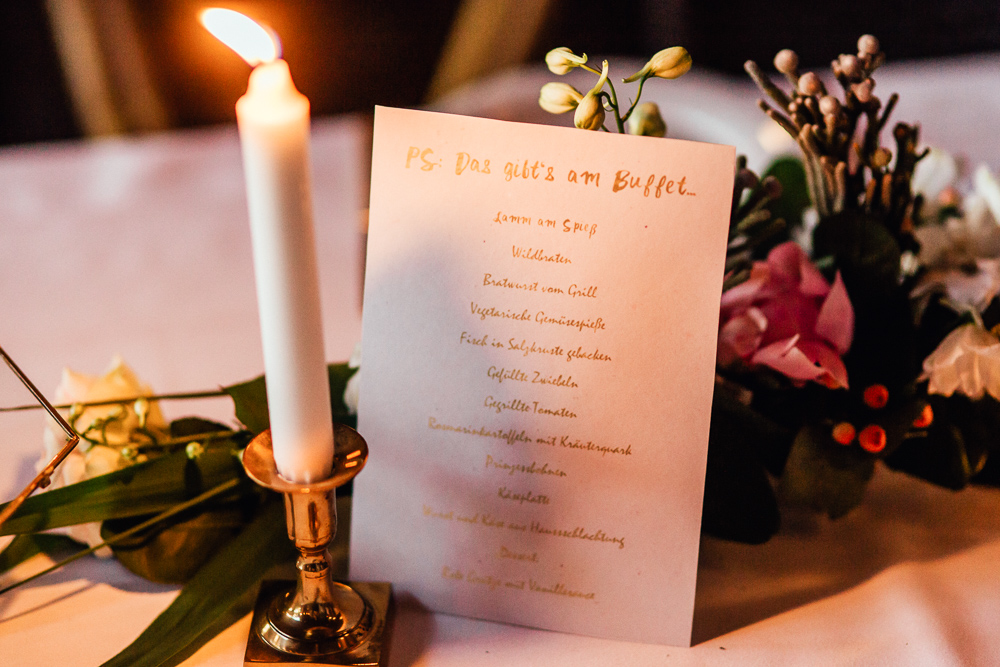 PS: Das gibt's am Buffet...
Lamm am Spieß
Wildbraten
Bratwurst vom Grill
Vegetarische Gemüsespieße
Fisch in Salzkruste gebacken
Gefüllte Zwiebeln
Gegrillte Tomaten
Rosmarinkartoffeln mit Kräuterquark
Prinzessbohnen
Käseplatte
Wurst und Käse aus Hausschlachtung
Dessert:
Rote Grütze mit Vanillesauce